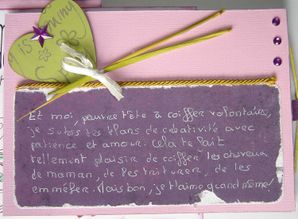 Et moi, pauvre tête à coiffer volontaire,
je subis tes élans de créativité avec
patience et amour. Cela te fait
tellement plaisir de coiffer les cheveux
de maman, de les triturer, de les
emmêler. Mais bon, je t'aime quand même!